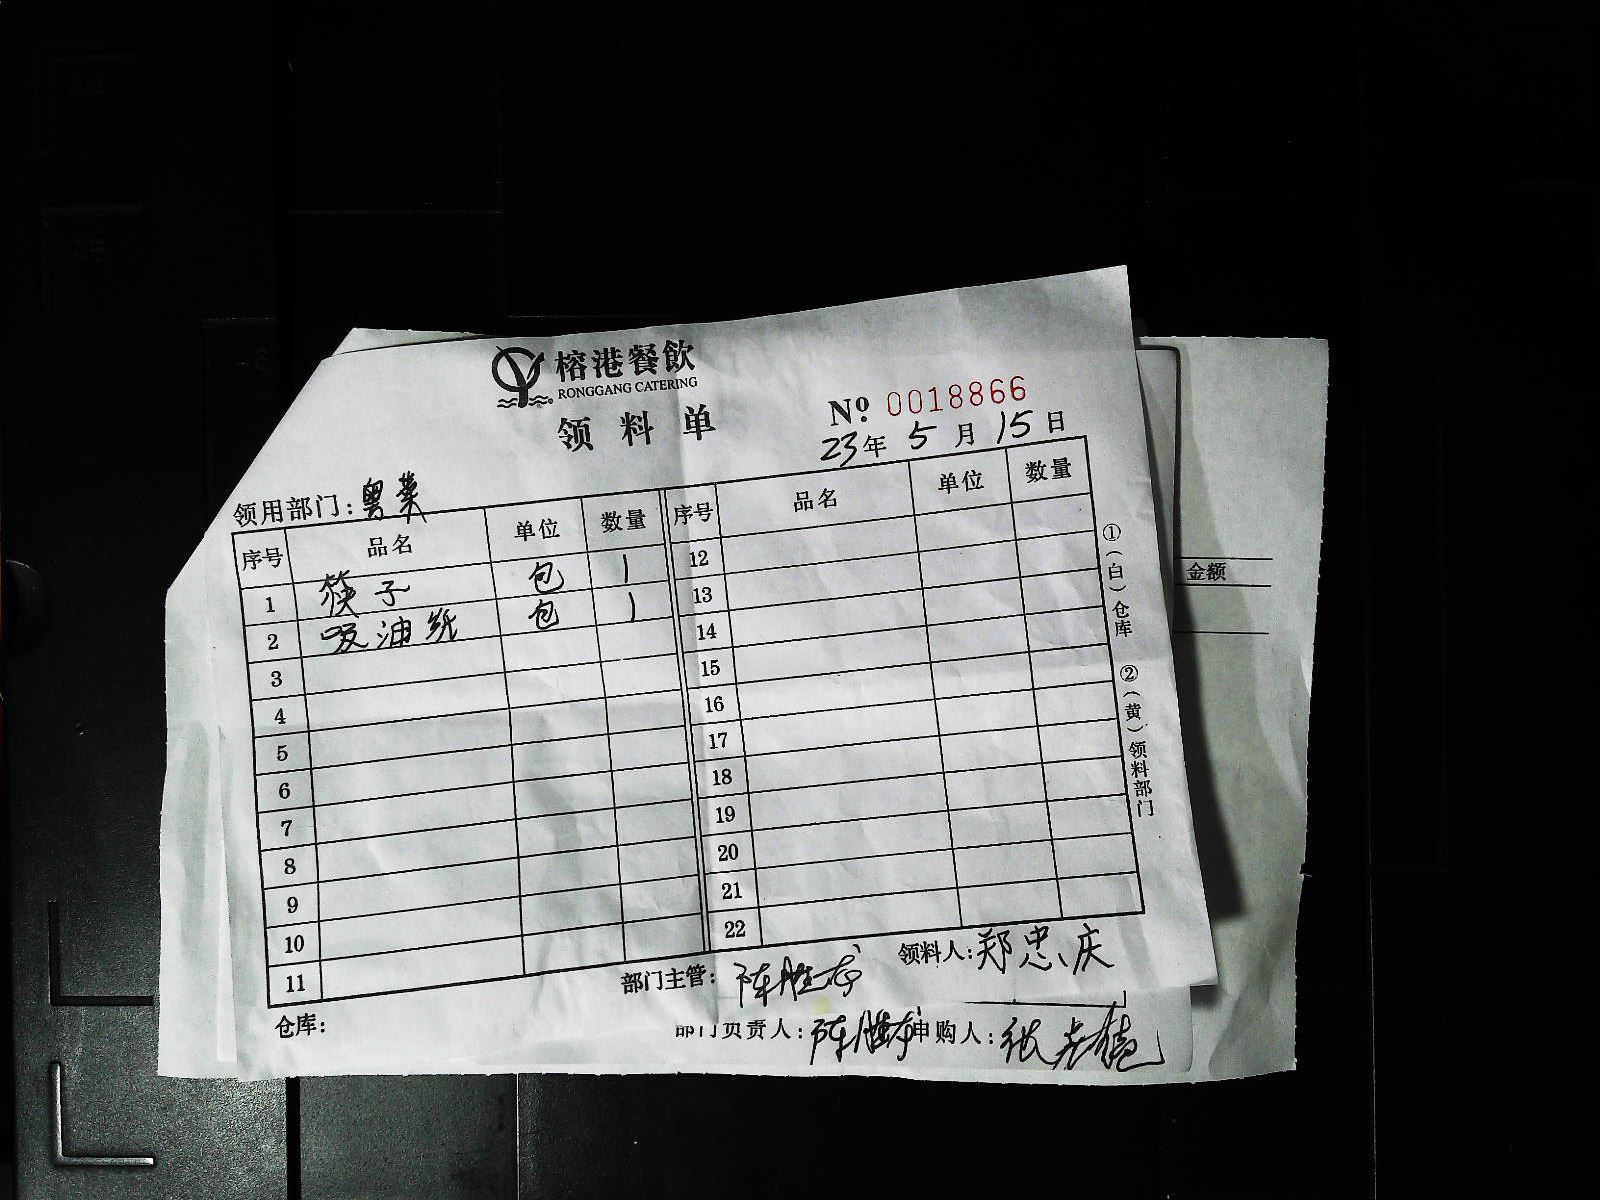 榕港餐飲
RONGGANG CATERING
领料单
№ 0018866
23年5月15日
领用部门：粤菜
序号 品名 单位 数量 序号 品名 单位 数量
1 筷子 包 1 12
2 吸油纸 包 1 13
3 14
4 15
5 16
6 17
7 18
8 19
9 20
10 21
11 22
①（白）仓库 ②（黄）领料部门
仓库： 部门主管：陈胜存 领料人：郑忠庆
部门负责人：陈胜存 申购人：张
金额